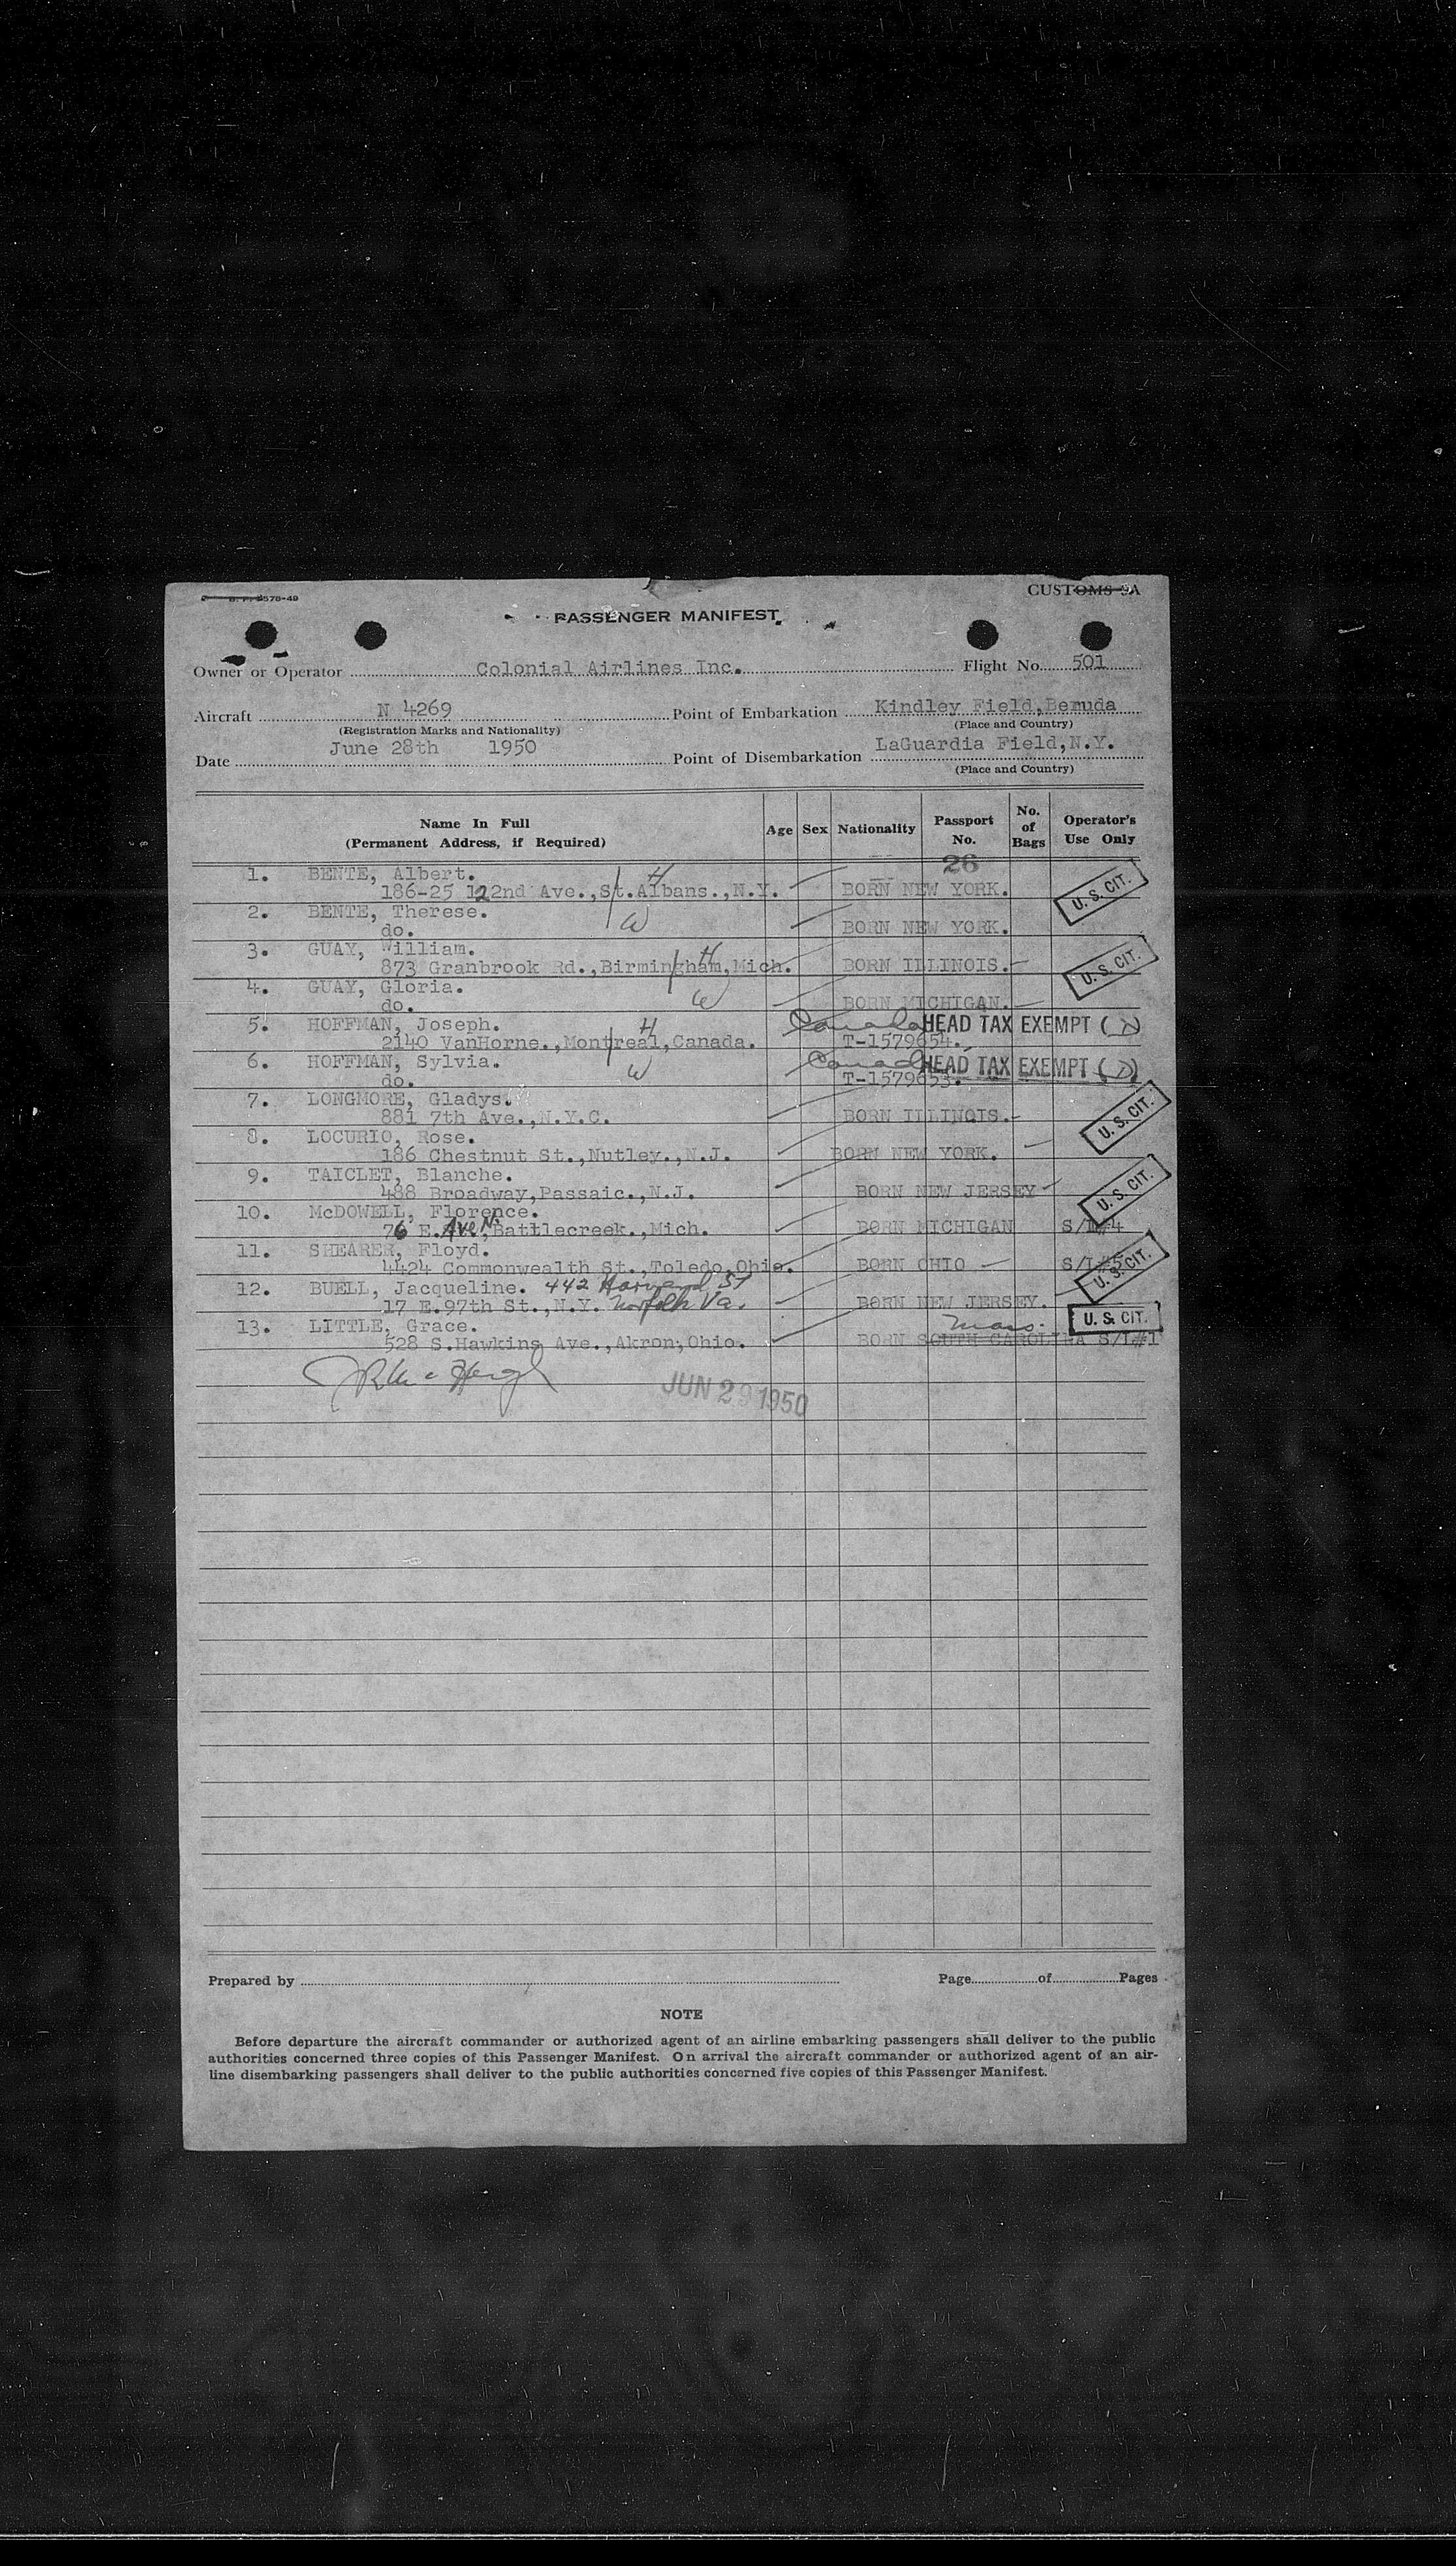 CUSTOMS 9A
PASSENGER MANIFEST
Owner or Operator Colonial Airlines Inc. Flight No. 501
Aircraft N 4269 Point of Embarkation Kindley Field,Bemuda
(Registration Marks and Nationality) (Place and Country)
Date June 28th 1950 Point of Disembarkation LaGuardia Field,N.Y.
(Place and Country)
Name In Full (Permanent Address, if Required) Age Sex Nationality Passport No. No. of Bags Operator's Use Only
26
1. BENTE, Albert. H
186-25 122nd Ave.,St.Albans.,N.Y. BORN NEW YORK. U. S. CIT.
2. BENTE, Therese. W
do. BORN NEW YORK.
3. GUAY, William. H
873 Granbrook Rd.,Birmingham,Mich. BORN ILLINOIS. U. S. CIT.
4. GUAY, Gloria. W
do. BORN MICHIGAN.
5. HOFFMAN, Joseph. H Canada HEAD TAX EXEMPT
2140 VanHorne.,Montreal,Canada. T-1579654.
6. HOFFMAN, Sylvia. W Canada HEAD TAX EXEMPT
do. T-1579653.
7. LONGMORE, Gladys.
881 7th Ave.,N.Y.C. BORN ILLINOIS. U. S. CIT.
8. LOCURIO, Rose.
186 Chestnut St.,Nutley.,N.J. BORN NEW YORK.
9. TAICLET, Blanche.
488 Broadway,Passaic.,N.J. BORN NEW JERSEY U. S. CIT.
10. McDOWELL, Florence.
76 E. Ave N. Battlecreek.,Mich. BORN MICHIGAN S/L#4
11. SHEARER, Floyd.
4424 Commonwealth St.,Toledo,Ohio. BORN OHIO S/L#5 U. S. CIT.
12. BUELL, Jacqueline. 442 Harvard ST
17 E.97th St.,N.Y. Norfolk Va. BORN NEW JERSEY.
13. LITTLE, Grace. Mass. U. S. CIT.
528 S.Hawkins Ave.,Akron,Ohio. BORN SOUTH CAROLINA S/L#1
JUN 29 1950
Prepared by Page of Pages
NOTE
Before departure the aircraft commander or authorized agent of an airline embarking passengers shall deliver to the public
authorities concerned three copies of this Passenger Manifest. On arrival the aircraft commander or authorized agent of an air-
line disembarking passengers shall deliver to the public authorities concerned five copies of this Passenger Manifest.